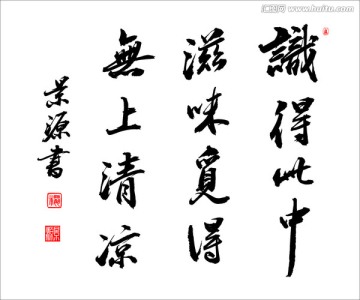 識得此中
滋味覓得
無上清凉
景源書
www.huitu.com